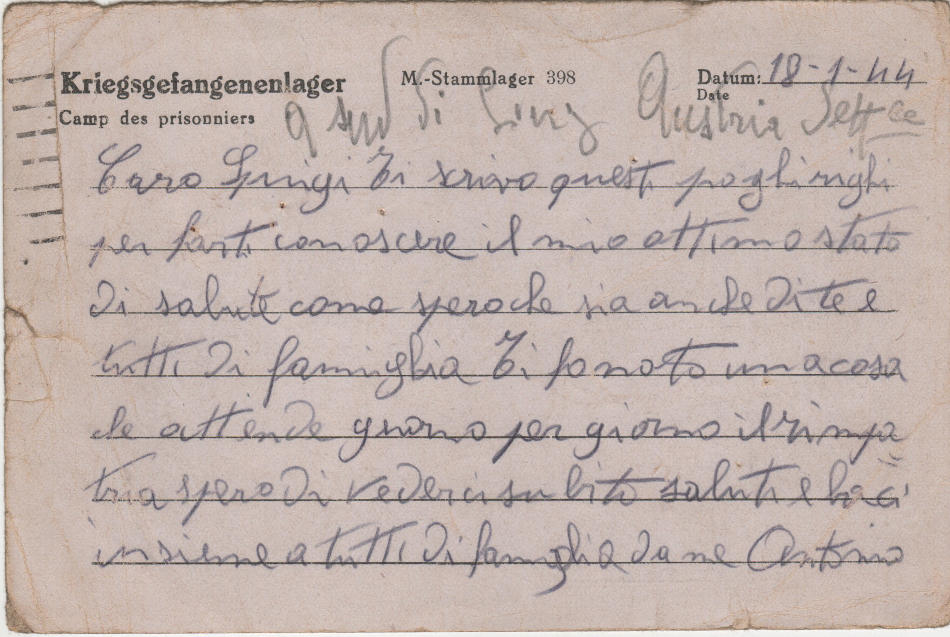 Kriegsgefangenenlager M.-Stammlager 398 Datum: 18-1-44
Camp des prisonniers Date
a sud di Linz Austria
Caro Luigi Ti scrivo questi poghi righi
per farti conoscere il mio ottimo stato
di salute come spero che sia anche di te e
tutti di famiglia Ti fo noto una cosa
che attende giorno per giorno il rimpa
tria spero di vederci subito saluti e baci
insieme a tutti di famiglia da me Antonio